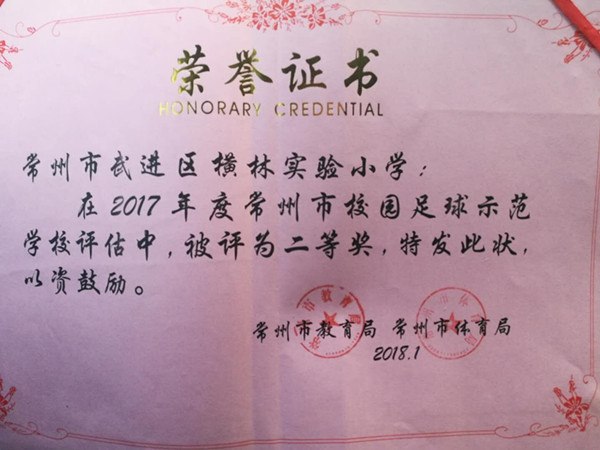 荣誉证书
HONORARY CREDENTIAL
常州市武进区横林实验小学：
在2017年度常州市校园足球示范
学校评估中，被评为二等奖，特发此状，
以资鼓励。
常州市教育局 常州市体育局
2018.1